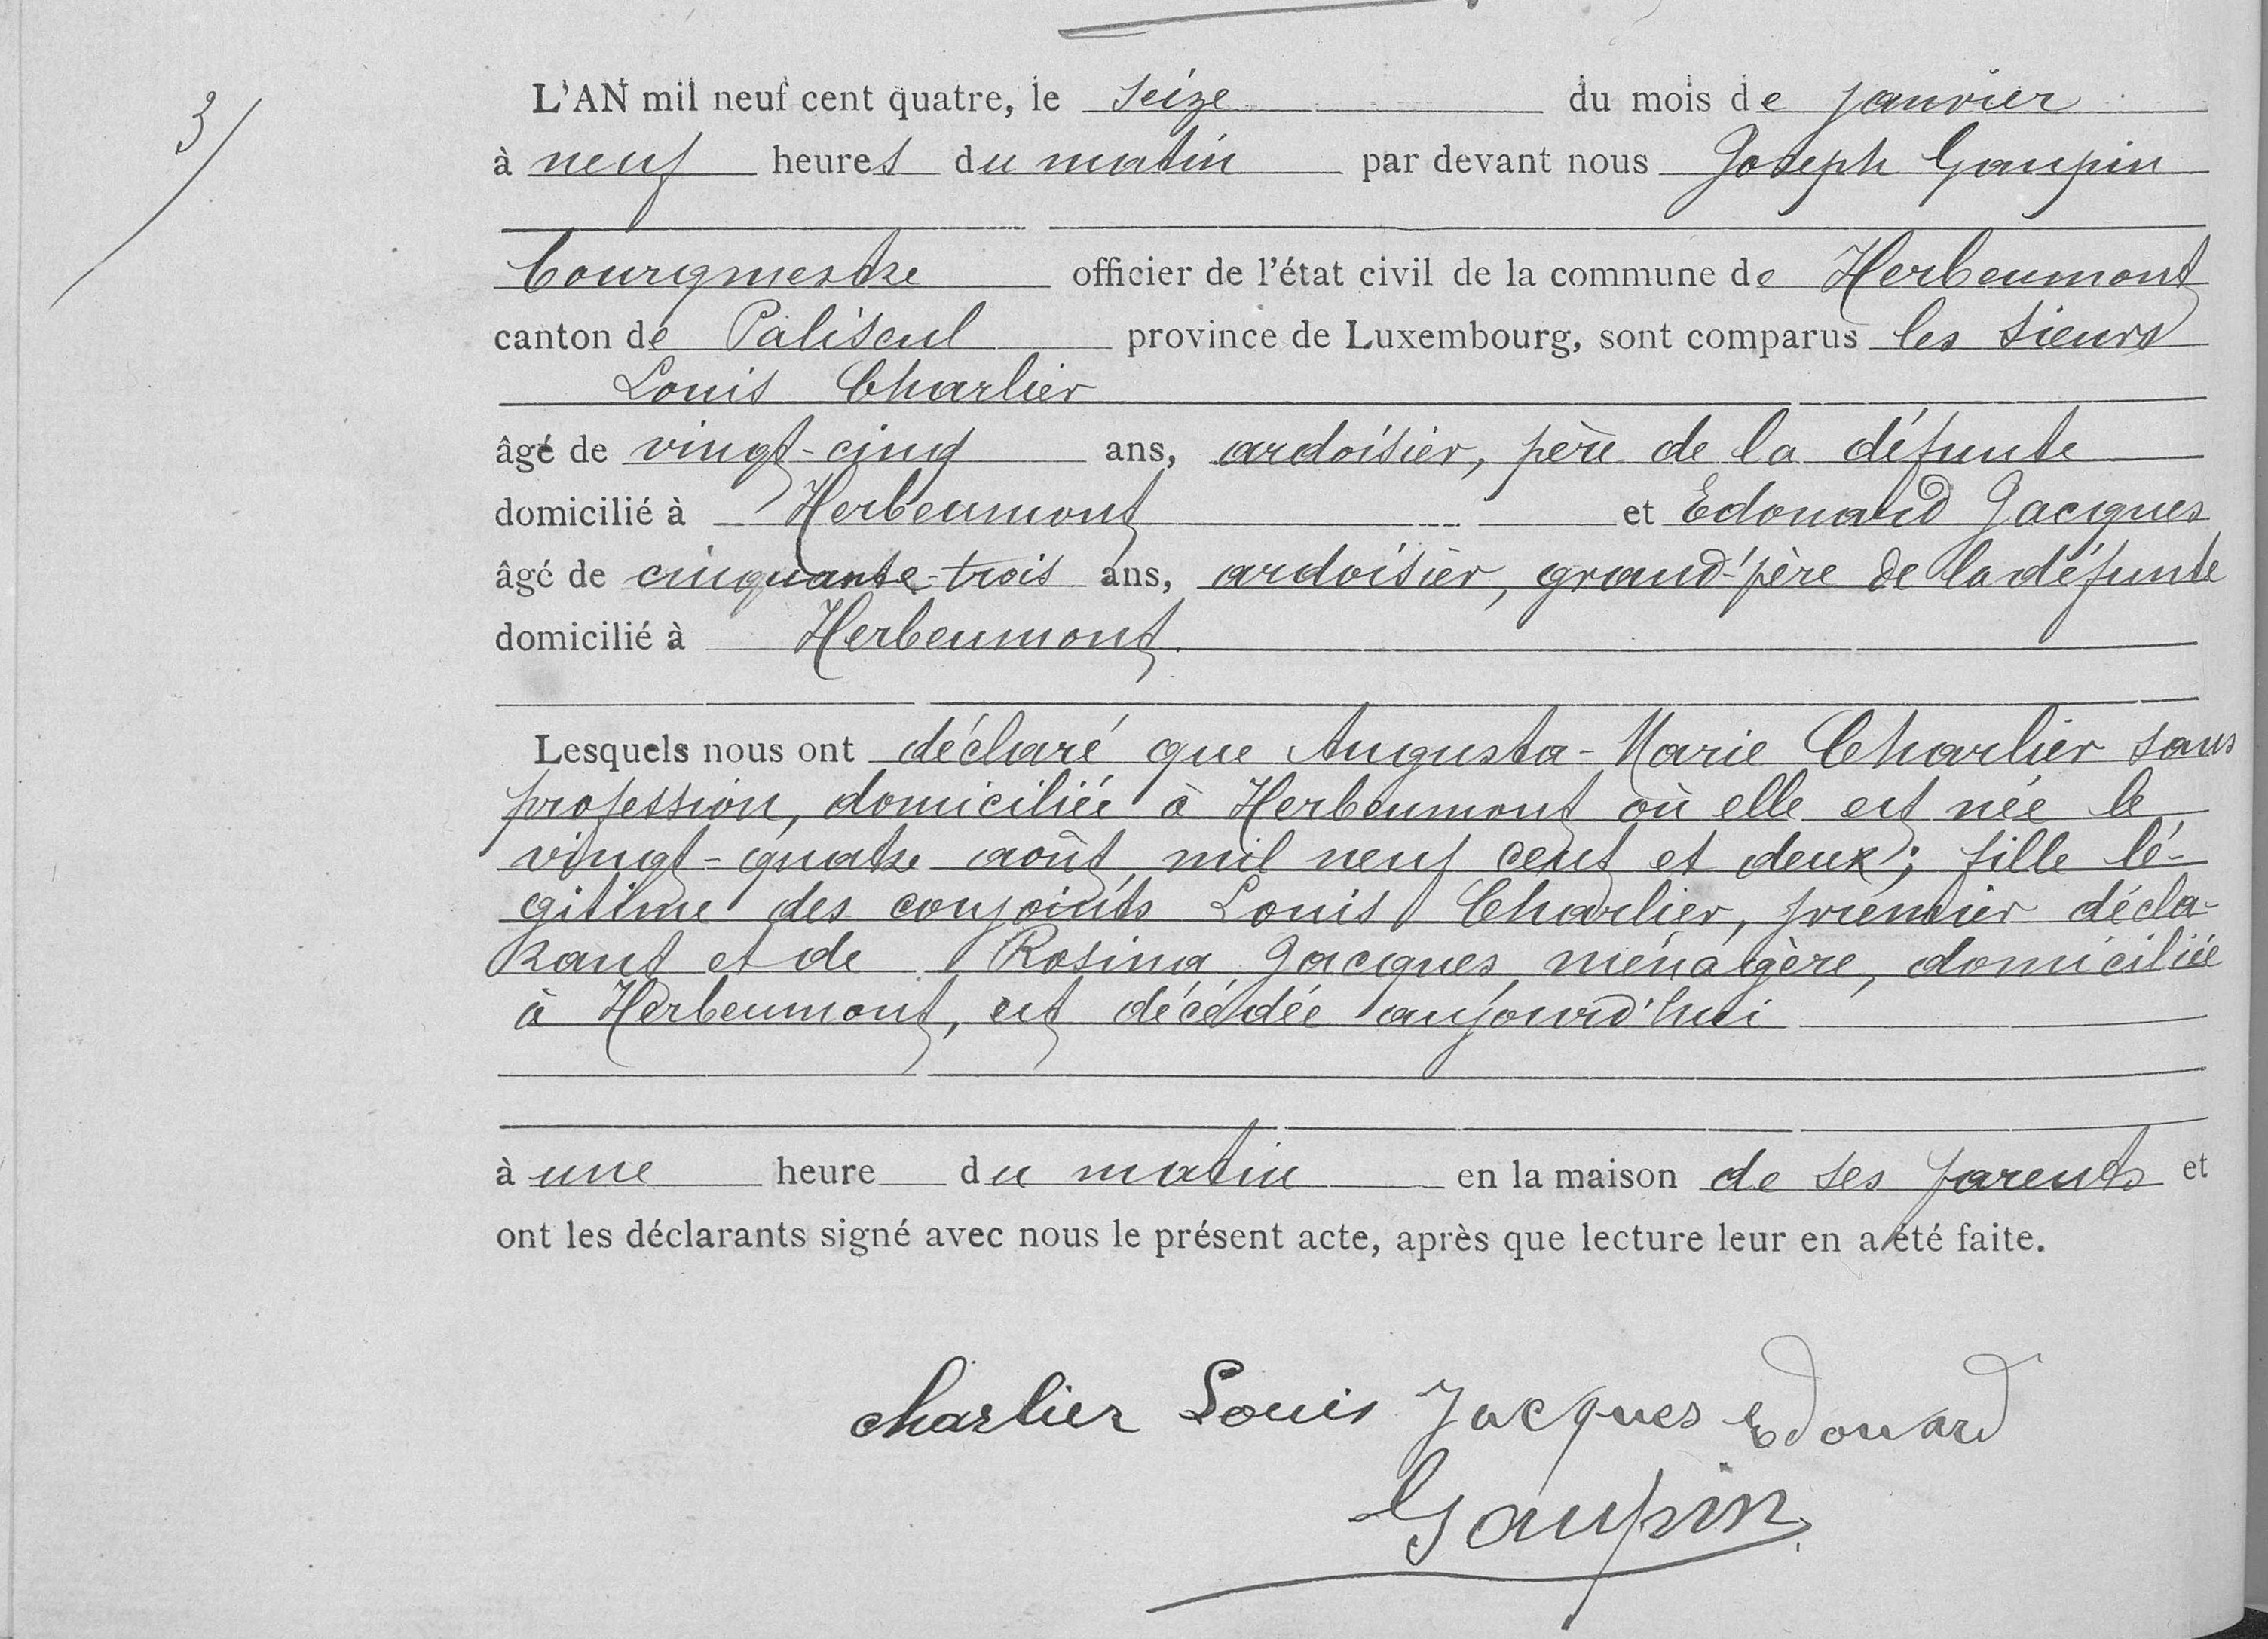 3/
L'AN mil neuf cent quatre, le seize du mois de janvier
à neuf heures du matin par devant nous Joseph Gaupin
bourgmestre officier de l'état civil de la commune de Herbeumont
canton de Paliseul province de Luxembourg, sont comparus les sieurs
Louis Charlier
âgé de vingt-cinq ans, ardoisier, père de la défunte
domicilié à Herbeumont et Edouard Jacques
âgé de cinquante-trois ans, ardoisier, grand-père de la défunte
domicilié à Herbeumont.
Lesquels nous ont déclaré que Augusta-Marie Charlier sans
profession, domiciliée à Herbeumont où elle est née le
vingt-quatre août mil neuf cent et deux; fille lé-
gitime des conjoints Louis Charlier, premier décla-
rant et de Rosina Jacques, ménagère, domiciliée
à Herbeumont, est décédée aujourd'hui
à une heure du matin en la maison de ses parents et
ont les déclarants signé avec nous le présent acte, après que lecture leur en a été faite.
charlier Louis Jacques Edouard
Gaupin